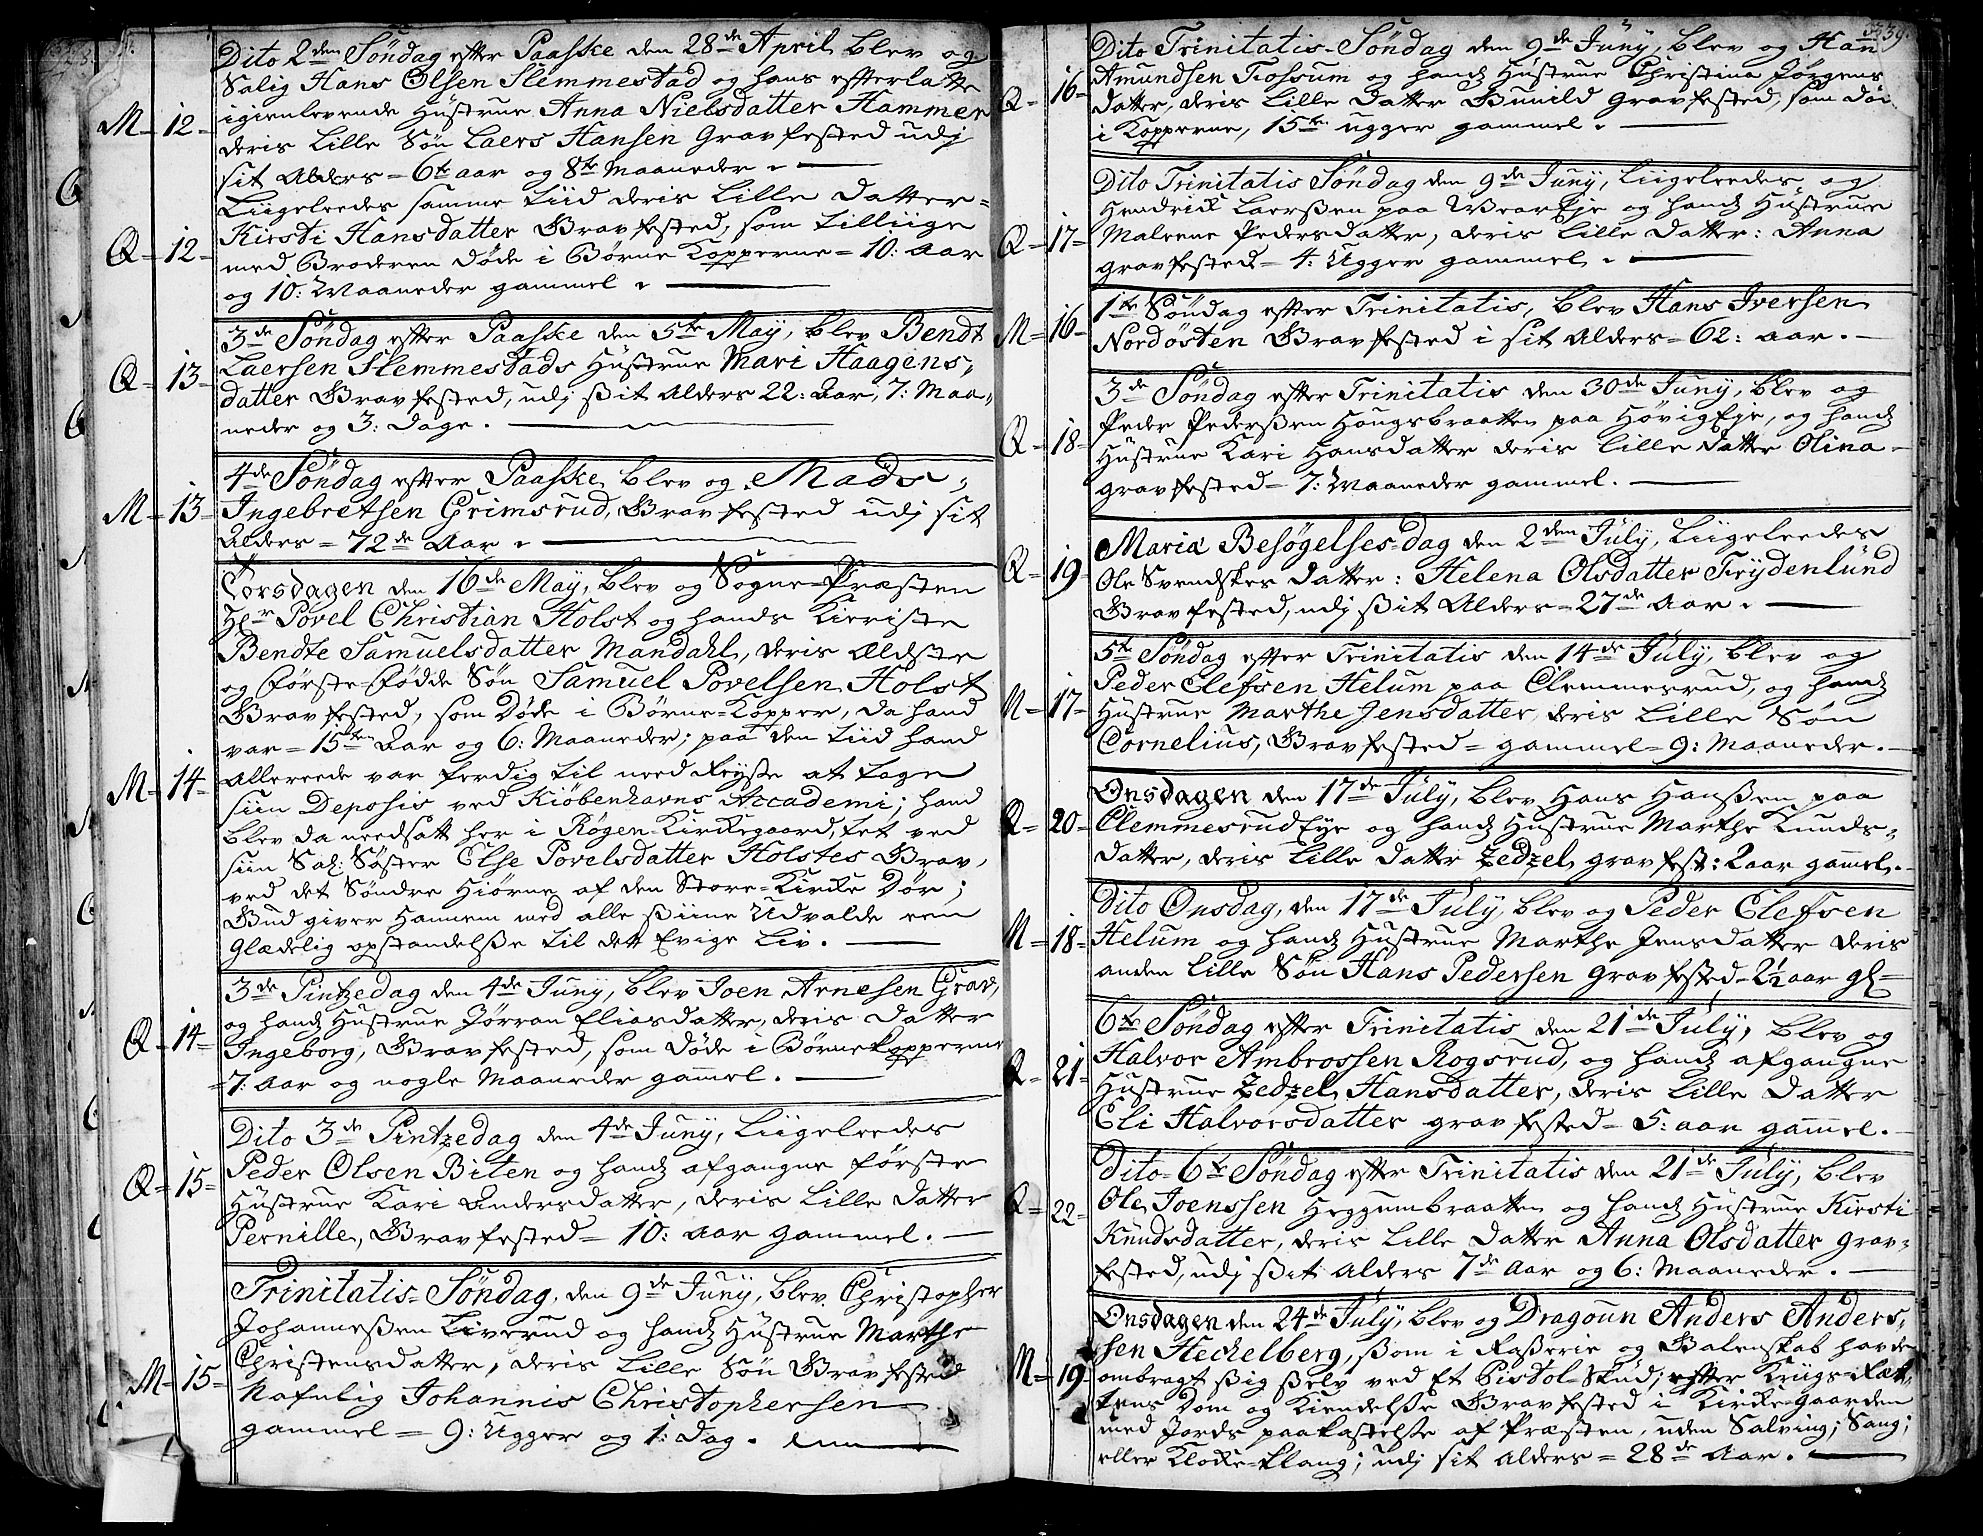 Dito 2den Söndag efter Paaske den 28de April blev og
Salig Hans Olsen Slemmestad og hans efterlatte
M = 12 = igienlevende Hüstrue Anna Nielsdatter Hammer
deris Lille Sön Laers Hansen Gravfested udj
sit Alders = 6te aar og 8te Maaneder.
Liigeleedes samme Tiid deris Lille Datter =
Q = 12 = Kirsti Hansdatter Gravfested, som tilliige
med Broderen döde i Börne Kopperne = 10: Aar
og 10: Maaneder gammel.
3de Söndag efter Paaske den 5te Maÿ, blev Bendt
Q = 13 = Laersen Slemmestads Hüstrue Mari Haagens,,
datter Gravfested, udj sit Alders 22: Aar, 7: Maa,,
neder og 3: Dage.
4de Söndag efter Paaske blev og Mads
M = 13 = Ingebretsen Grimsrud, Gravfested udj sit
Alders = 72de Aar.
Torsdagen den 16de Maÿ, blev og Sogne-Præsten
Hr Povel Christian Holst og hands Kieriste
Bendte Samuelsdatter Mandahl, deris Ældste
og förste-födde Sön Samuel Povelsen Holst
Gravfested, som Döde i Börne-Kopper, da hand
var = 15ten Aar og 6: Maaneder; paa den tiid hand
M = 14 = allereede var ferdig til need Reÿse at tage
siin Deposis ved Kiöbenhavns Accademi; hand
blev da needsatt her i Rögen-Kirkegaard, tet ved
siin Sal: Söster Else Povelsdatter Holstes Grav,
ved det Söndre Hiörne af den Store-Kirke Dör;
Gud giver Hannem med alle siine Udvalde een
glædelig opstandelse til dett Evige Liv.
3de Pintzedag den 4de Junÿ, blev Joen Arnesen Grav,
og hands Hüstrue Jörran Eliasdatter, deris Datter
Q = 14 = Ingeborg, Gravfested, som döde i Börnekopperne
= 7: Aar og nogle Maaneder gam̄el.
Dito 3de Pintzedag den 4de Junÿ, Liigeleedes
Q = 15 = Peder Olsen Biten og hands afgangne förste
Hüstrue Kari Andersdatter, deris Lille Datter
Pernille, Gravfested = 10: Aar gammel.
Trinitatis-Söndag, den 9de Junÿ, blev Christopher
Johannessen Liverud og hands Hüstrue Marthe
M = 15 = Christensdatter, deris Lille Sön Gravfested
Nafnlig Johannis Christophersen
gammel = 9: Ugger og 1: Dag.
339.
Dito Trinitatis-Söndag den 9de Junÿ, blev og Han
Q = 16 = Amundsen Fossum og hands Hüstrue Christina Jörgens
datter, deris Lille Datter Gunild Gravfested, som döe
i Kopperne, 15ten ugger gammel.
Dito Trinitatis Söndag den 9de Junÿ, Liigeleedes og
Hendrick Laerssen paa Eje og hands Hüstrue
Q = 17 = Malene Pedersdatter, deris Lille Datter: Anna
gravfested = 4: Ugger gammel.
1te Söndag efter Trinitatis, blev Hans Iversen
M = 16 = Nordösten Gravfested i sit Alders = 62: aar.
3de Söndag efter Trinitatis den 30de Junÿ, blev og
Peder Pederssen Hougsbraatten paa HövigEje, og hands
Q = 18 = Hüstrue Kari Hansdatter deris Lille datter Olina
gravfested = 7: Maaneder gammel.
Mariæ Besögelses-dag den 2den Julÿ, Liigeleedes
Q = 19 = Ole Svendskes datter: Helena Olsdatter Frÿdenlünd
Gravfested, udj sit Alders = 27de Aar.
5te Söndag efter Trinitatis den 14de Julÿ, blev og
Peder Elefsen Helum paa Clemmesrud, og hands
M = 17 = Hüstrue Marthe Jensdatter, deris Lille Sön
Cornelius, Gravfested = gammel = 9: Maaneder.
Onsdagen den 17de Julÿ, blev Hans Hanssen paa
Q = 20 = ClemmesrudEÿe og hands Hüstrue Marthe Knuds,,
datter, deris Lille datter Zedzel gravfest: 2 aar gam̄el.
Dito Onsdag, den 17de Julÿ, blev og Peder Elefsen
M = 18 = Helum og hands Hüstrue Marthe Jensdatter deris
anden Lille Sön Hans Pedersen Gravfested = 2½ aar gl =
6te Söndag efter Trinitatis den 21de Julÿ, blev og
Halvor Ambrossen Rogsrud, og hands afgangne
Q = 21 = Hüstrue Zedzel Hansdatter, deris Lille Datter
Eli Halvorsdatter gravfested = 5: aar gam̄el.
Dito = 6te Söndag efter Trinitatis den 21de Julÿ, blev
Q = 22 = Ole Joenssen Heggumbraatten og hands Hüstrue Kirsti
Knüdsdatter, deris Lille Datter Anna Olsdatter grav,,
fested, udj sit Alders 7de Aar og 6: Maaneder.
Onsdagen den 24de Julÿ, blev og Dragoun Anders Anders,,
sen Heckelberg, som i Raserie og Galenskab havde
M = 19 = ombragt sig selv ved et Pistol-Skud; efter Krigs-Ræt,,
tens Dom og Kiendelse Gravfested i Kirke-gaarden
med Jords paakastelse af Præsten, uden Salving; Sang;
eller Klokke-klang; udj sit Alders = 28de Aar.